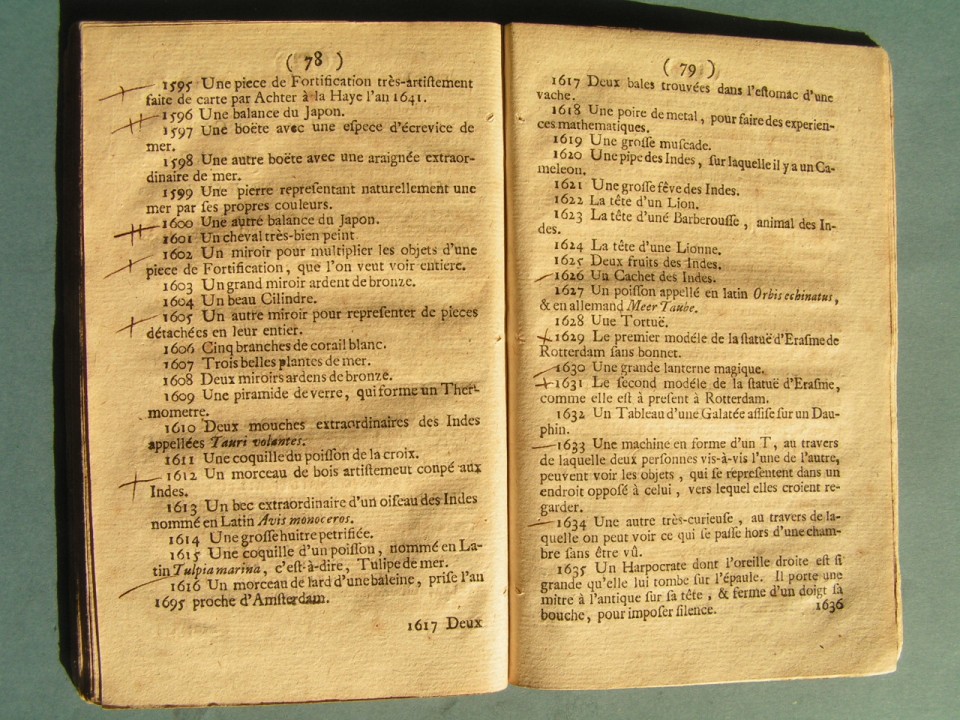 ( 78 )
1595 Une piece de Fortification très-artiſtement
faite de carte par Achter à la Haye l'an 1641.
1596 Une balance du Japon.
1597 Une boëte avec une eſpece d'écrevice de
mer.
1598 Une autre boëte avec une araignée extraor-
dinaire de mer.
1599 Une pierre repreſentant naturellement une
mer par ſes propres couleurs.
1600 Une autre balance du Japon.
1601 Un cheval très-bien peint.
1602 Un miroir pour multiplier les objets d'une
piece de Fortification, que l'on veut voir entiere.
1603 Un grand miroir ardent de bronze.
1604 Un beau Cilindre.
1605 Un autre miroir pour repreſenter de pieces
détachées en leur entier.
1606 Cinq branches de corail blanc.
1607 Trois belles plantes de mer.
1608 Deux miroirs ardens de bronze.
1609 Une piramide de verre, qui forme un Ther-
mometre.
1610 Deux mouches extraordinaires des Indes
appellées Tauri volantes.
1611 Une coquille du poiſſon de la croix.
1612 Un morceau de bois artiſtemeut coupé aux
Indes.
1613 Un bec extraordinaire d'un oiſeau des Indes
nommé en Latin Avis monoceros.
1614 Une groſſe huitre petrifiée.
1615 Une coquille d'un poiſſon, nommé en La-
tin Tulpia marina, c'eſt-à-dire, Tulipe de mer.
1616 Un morceau de lard d'une baleine, priſe l'an
1695 proche d'Amſterdam.
1617 Deux
( 79 )
1617 Deux bales trouvées dans l'eſtomac d'une
vache.
1618 Une poire de metal, pour faire des experien-
ces mathematiques.
1619 Une groſſe muſcade.
1620 Une pipe des Indes, ſur laquelle il y a un Ca-
meleon.
1621 Une groſſe fêve des Indes.
1622 La tête d'un Lion.
1623 La tête d'uné Barberouſſe, animal des In-
des.
1624 La tête d'une Lionne.
1625 Deux fruits des Indes.
1626 Un Cachet des Indes.
1627 Un poiſſon appellé en latin Orbis echinatus,
& en allemand Meer Taube.
1628 Uue Tortuë.
1629 Le premier modéle de la ſtatuë d'Eraſme de
Rotterdam ſans bonnet.
1630 Une grande lanterne magique.
1631 Le ſecond modéle de la ſtatuë d'Eraſme,
comme elle eſt à preſent à Rotterdam.
1632 Un Tableau d'une Galatée aſſiſe ſur un Dau-
phin.
1633 Une machine en forme d'un T, au travers
de laquelle deux perſonnes vis-à-vis l'une de l'autre,
peuvent voir les objets, qui ſe repreſentent dans un
endroit oppoſé à celui, vers lequel elles croient re-
garder.
1634 Une autre très-curieuſe, au travers de la-
quelle on peut voir ce qui ſe paſſe hors d'une cham-
bre ſans être vû.
1635 Un Harpocrate dont l'oreille droite eſt ſi
grande qu'elle lui tombe ſur l'épaule. Il porte une
mitre à l'antique ſur ſa tête, & ferme d'un doigt ſa
bouche, pour impoſer ſilence.
1636